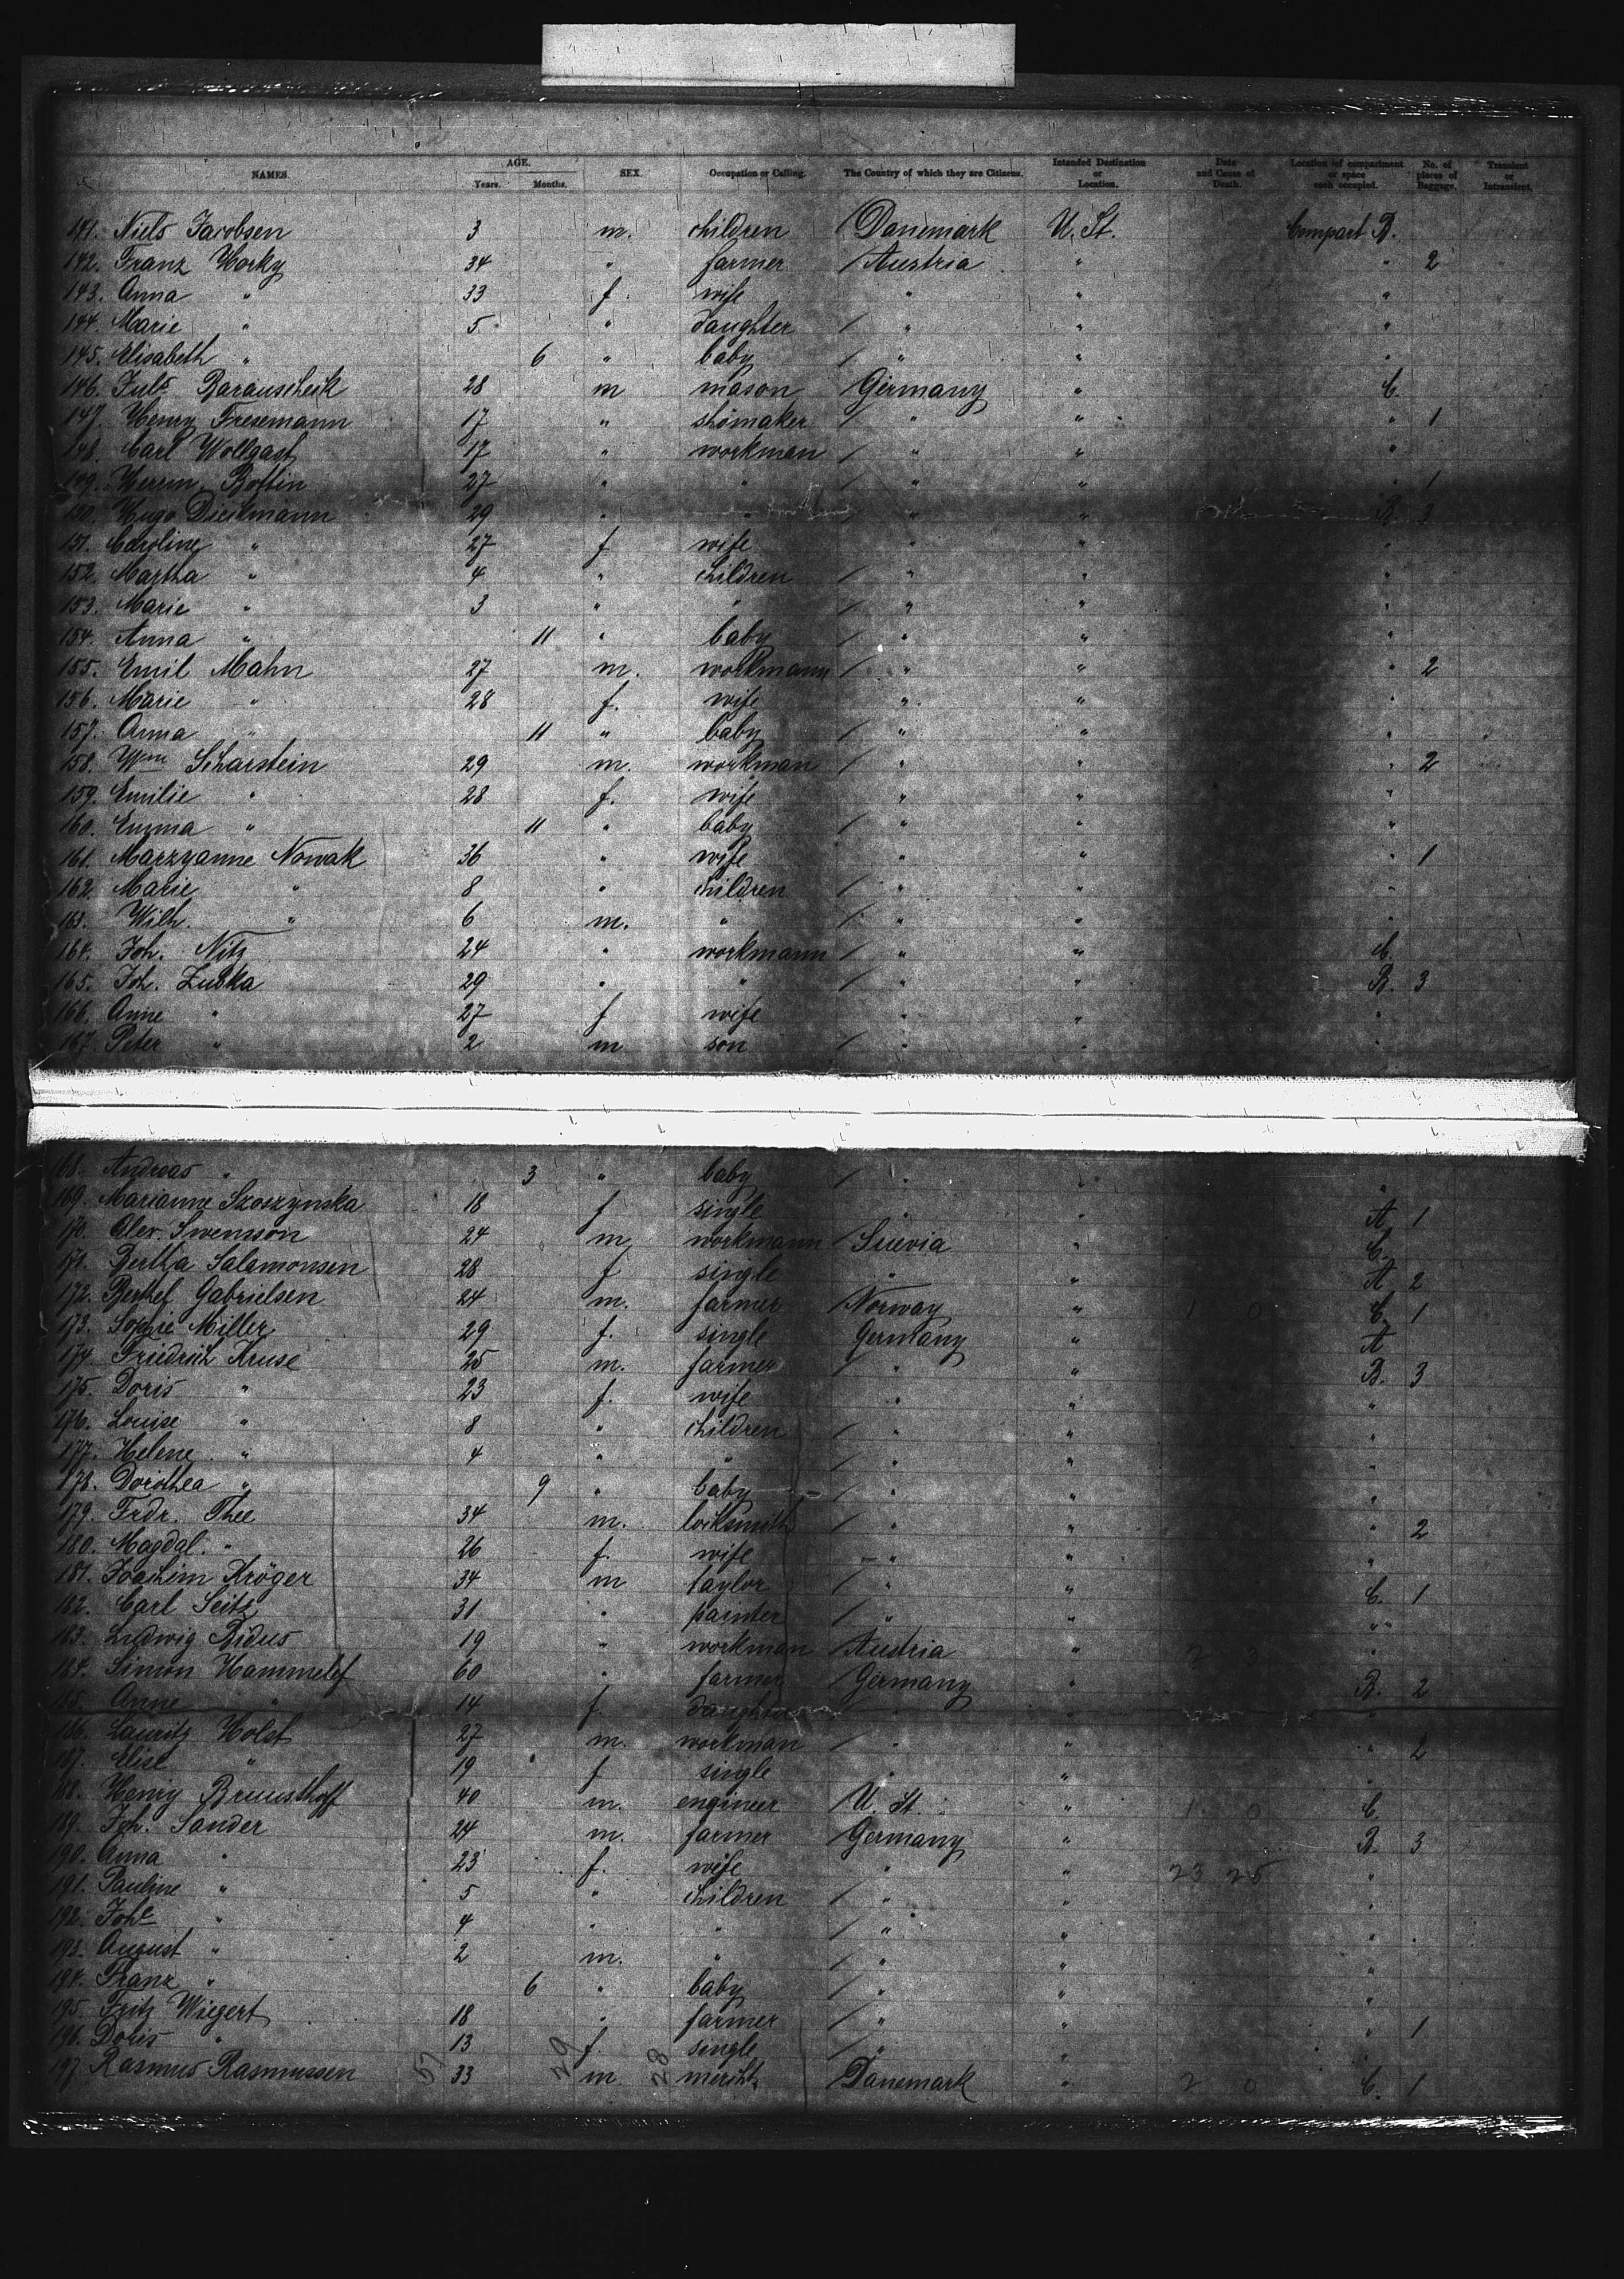 NAMES. AGE. Years. Months. SEX. Occupation or Calling. The Country of which they are Citizens. Intended Destination or Location. Date and Cause of Death. Location of compartment or space each occupied. No. of pieces of Baggage. Transient or Intransient.
141. Niels Jacobsen 3 m. children Danemark U. St. Compart B.
142. Franz Horky 34 " farmer Austria " " 2
143. Anna " 33 f. wife " " "
144. Marie " 5 " daughter " " "
145. Elisabeth " 6 " baby " " "
146. Juls Barauscheik 28 m mason Germany " C.
147. Henry Fresemann 17 " shomaker " " " 1
148. Carl Wollgast 17 " workman " " "
149. Herrm. Bottin 27 " " " " " 1
150. Hugo Dieckmann 29 " " " " B. 3
151. Caroline " 27 f wife " " "
152. Martha " 4 " children " " "
153. Marie " 3 " " " " "
154. Anna " 11 " baby " " "
155. Emil Mahn 27 m. workmann " " " 2
156. Marie " 28 f. wife " " "
157. Anna " 11 " baby " " "
158. Wm Scharstein 29 m. workman " " " 2
159. Emilie " 28 f. wife " " "
160. Emma " 11 " baby " " "
161. Marzyanne Nowak 36 " wife " " " 1
162. Marie " 8 " children " " "
163. Wilh. " 6 m. " " " "
164. Joh. Nitz 24 " workmann " " C.
165. Joh. Zuska 29 " " " " B. 3
166. Anne " 27 f wife " " "
167. Peter " 2 m son " " "
168. Andreas " 3 " baby " " "
169. Marianne Szoszynska 18 f single " " A. 1
170. Alex. Swensson 24 m. workmann Suevia " C.
171. Bertha Salamonsen 28 f single " " A 2
172. Berthel Gabrielsen 24 m. farmer Norway " 1 0 C. 1
173. Sophie Miller 29 f. single Germany " A
174. Friedrich Kruse 25 m. farmer " " B. 3
175. Doris " 23 f. wife " " "
176. Louise " 8 " children " " "
177. Helene " 4 " " " " "
178. Dorothea " 9 " baby " " "
179. Frdr. Thee 34 m. locksmith " " " 2
180. Magdal. " 26 f. wife " " "
181. Joachim Kröger 34 m taylor " " C. 1
182. Carl Seitz 31 " painter " " "
183. Ludwig Bidus 19 " workman Austria " 2 3 "
184. Simon Hammelef 60 " farmer Germany " B. 2
185. Anne " 14 f. daughter " " "
186. Lauritz Holst 27 m. workman " " " 2
187. Elise " 19 f single " " "
188. Henry 40 m. engineer U. St. " 1 0 C.
189. Joh. Sander 24 m. farmer Germany " B. 3
190. Anna " 23 f. wife " " 23 25 "
191. Pauline " 5 " children " " "
192. Johe " 4 " " " " "
193. August " 2 m. " " " "
194. Franz " 6 " baby " " "
195. Fritz Wiegert 18 " farmer " " " 1
196. Doris " 13 f. single " " "
197. Rasmus Rasmussen 57 33 29 m 28 mercht. Danemark " 2 0 C. 1